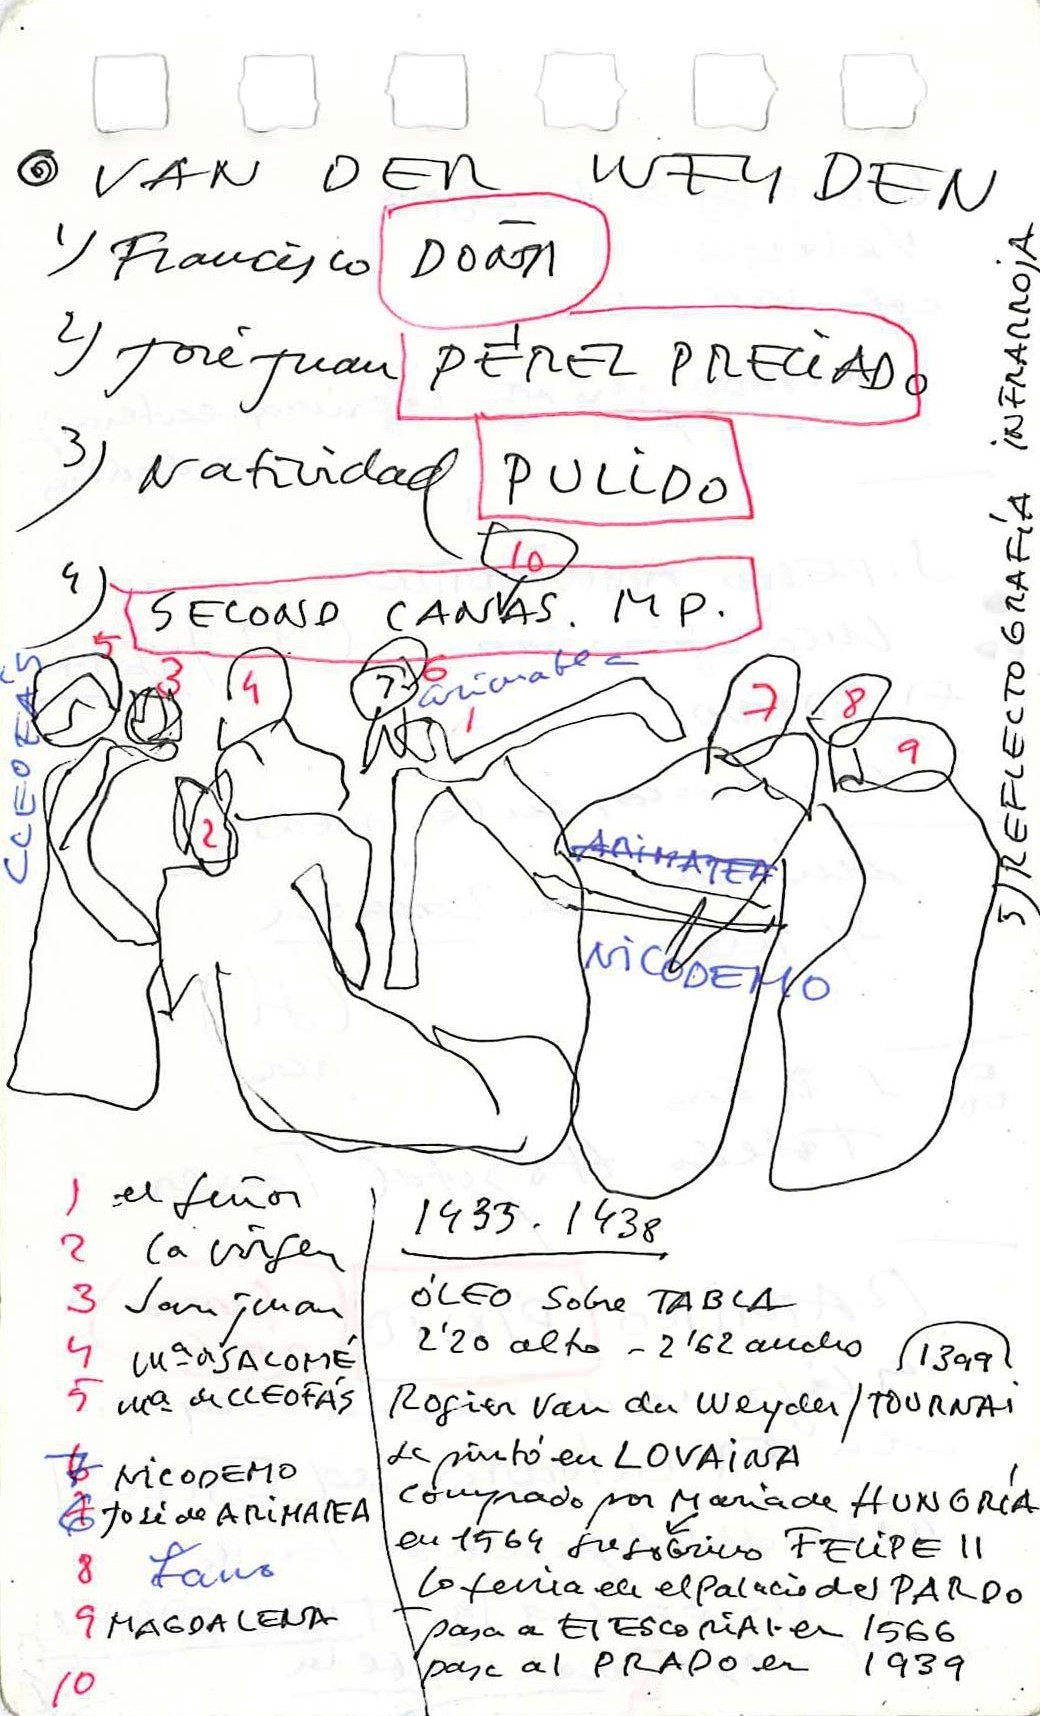 VAN DER WEYDEN
1) Francisco DOÑA
2) José Juan PÉREZ PRECIADO
3) Natividad PULIDO
10
4) SECOND CANVAS. M P.
5) REFLECTOGRAFÍA INFRARROJA
5 3 4 7 6 arimatea 1 7 8 9
CLEOFÁS
2
ARIMATEA
NICODEMO
1 el Señor
2 la virgen
3 San juan
4 Mª SALOMÉ
5 Mª de CLEOFÁS
7 NICODEMO
6 José de ARIMATEA
8
9 MAGDALENA
10
1435 - 1438
ÓLEO Sobre TABLA
2'20 alto - 2'62 ancho
1399
Rogier Van der Weyden / TOURNAI
Se pintó en LOVAINA
Comprado por María de HUNGRÍA
en 1564 su sobrino FELIPE II
lo tenía en el Palacio del PARDO
pasa a El ESCORIAL en 1566
pasa al PRADO en 1939